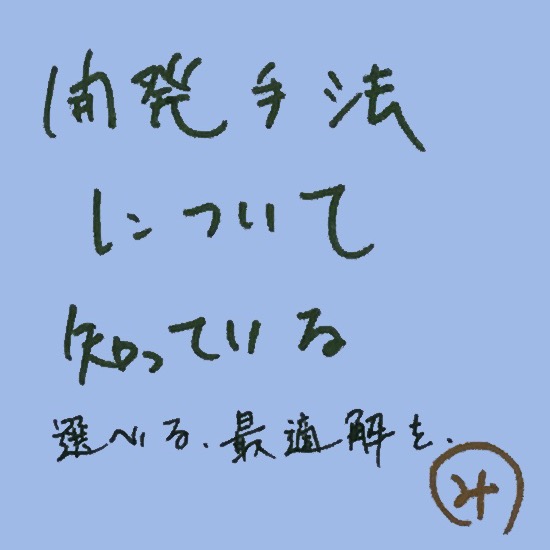 開発手法
について
知っている
選べる、最適解を.